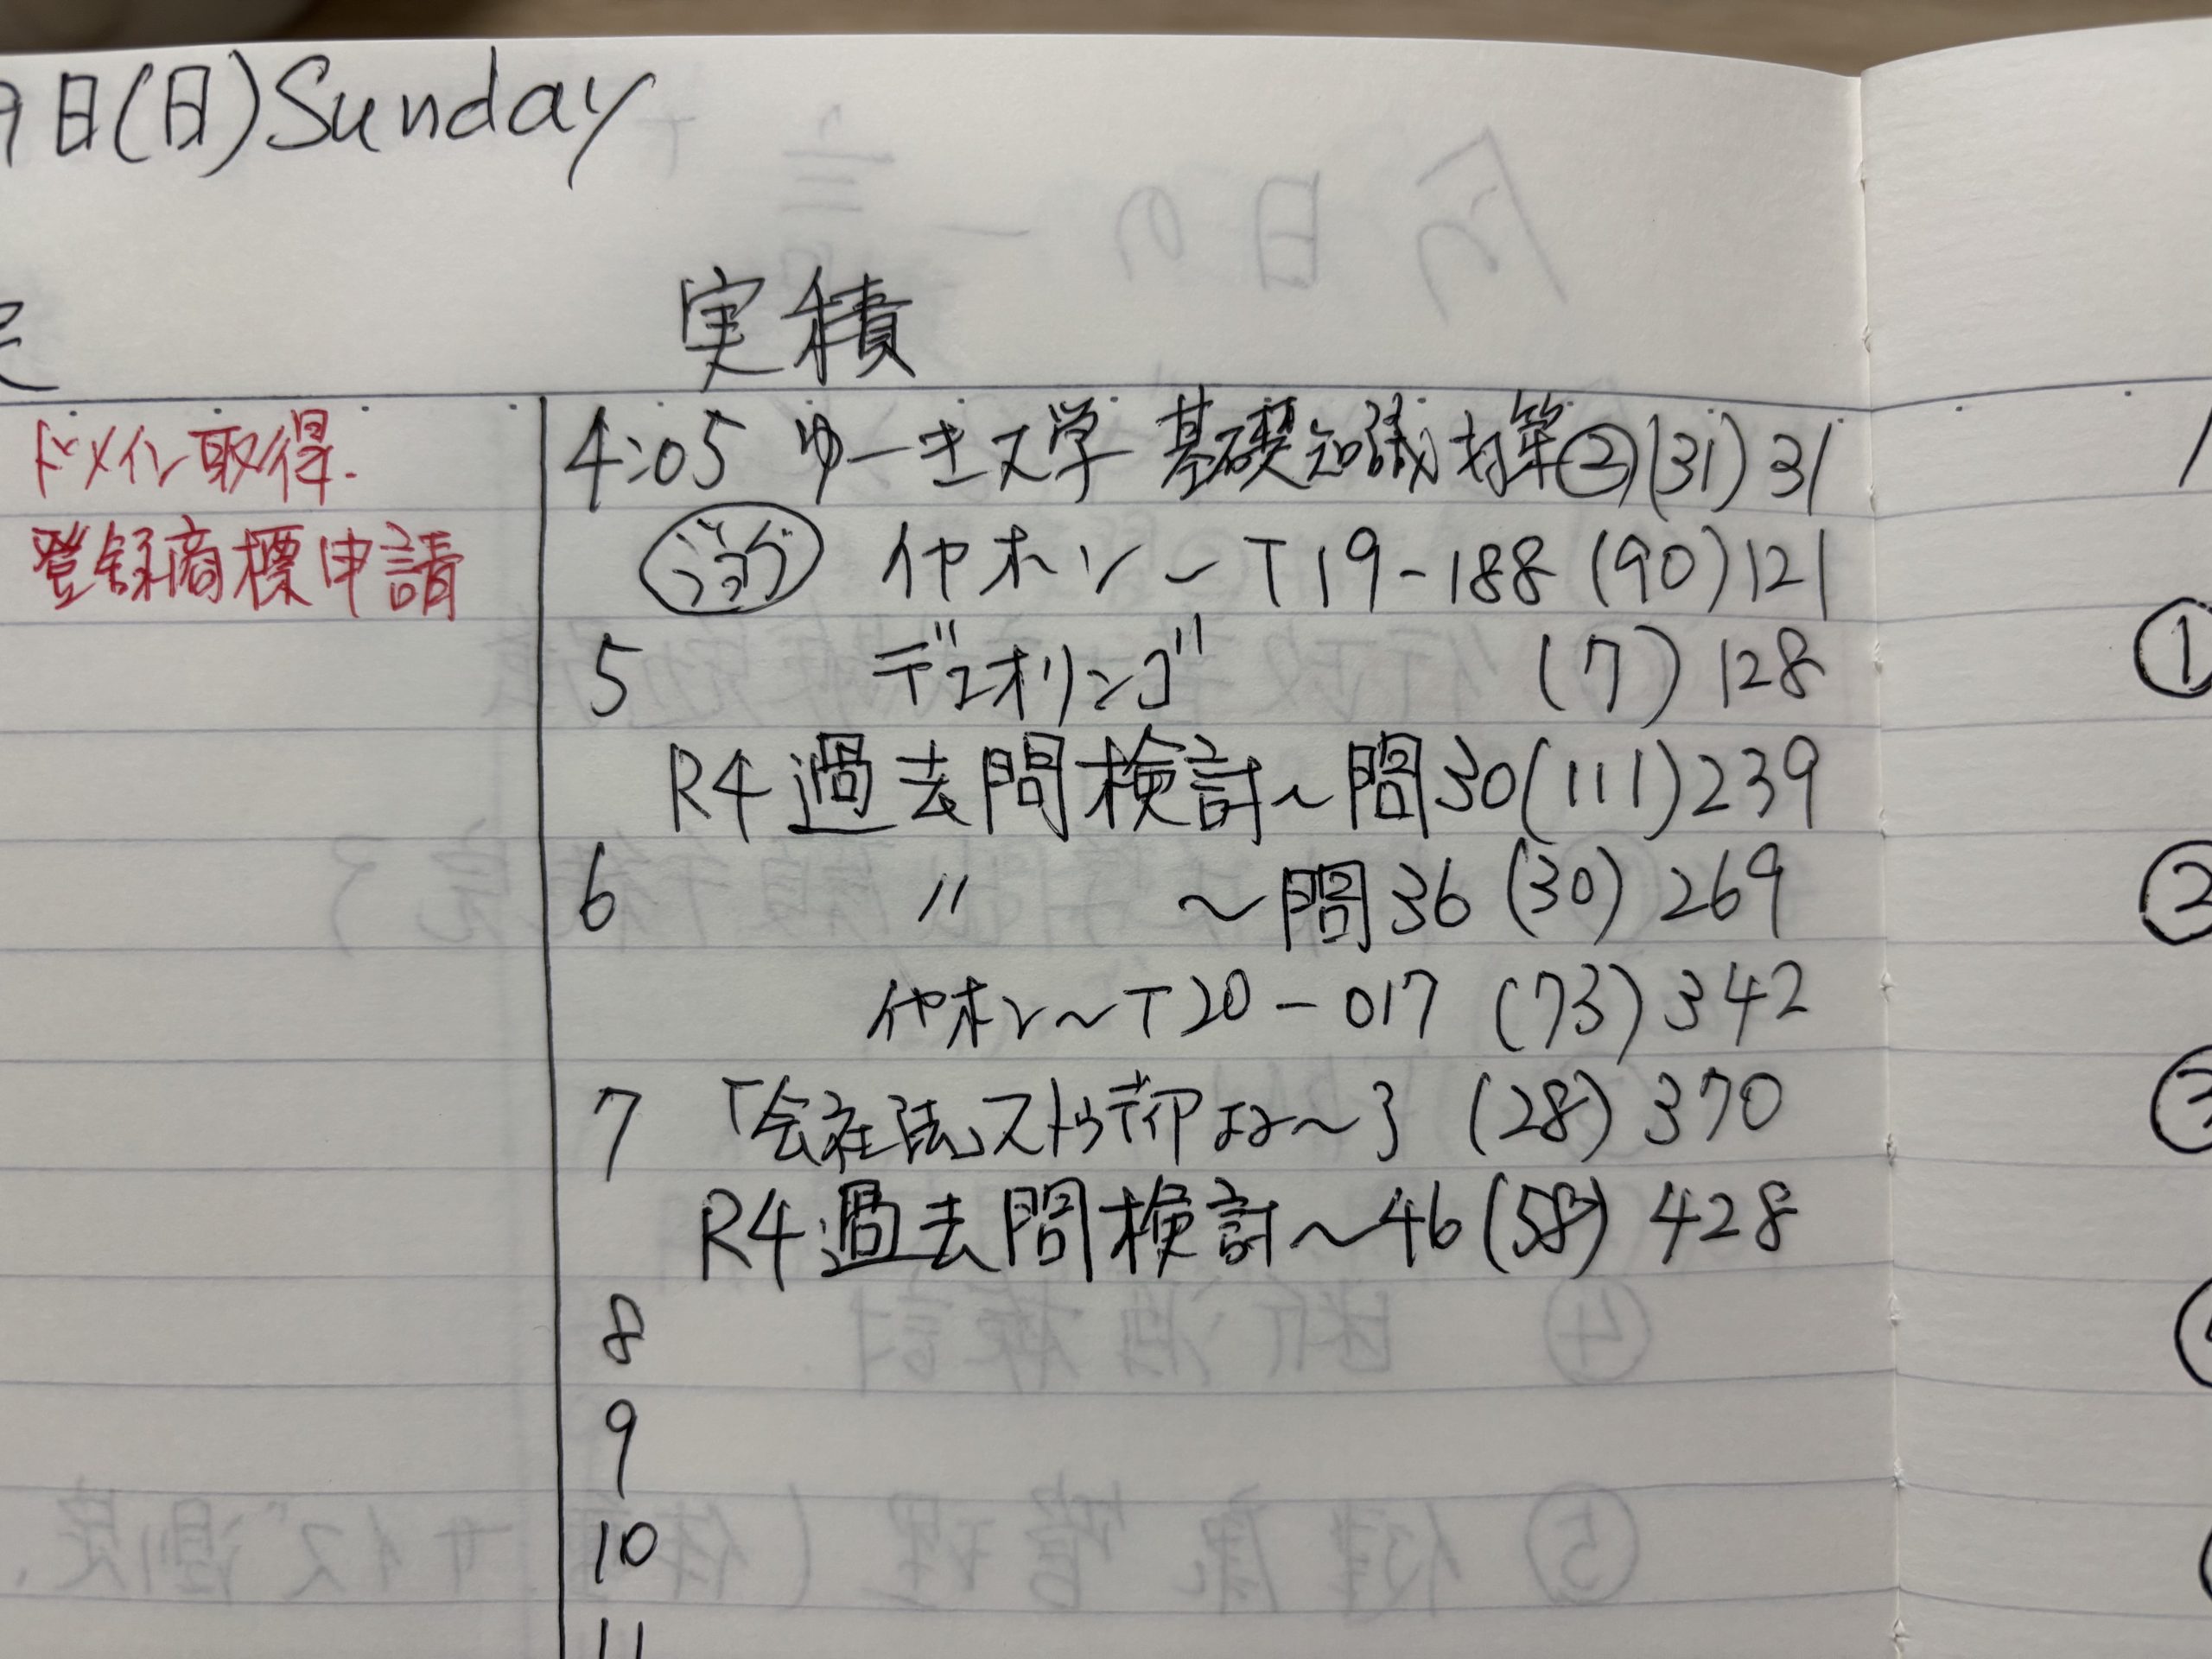 9日(日)Sunday
実積
ドメイン取得.
登録商標申請
4:05 ゆーき大学 基礎知識対策②(31)31
ジョグ イヤホン〜T19-188(90)121
5 デュオリンゴ (7)128
R4過去問検討〜問30(111)239
6 〃 〜問36(30)269
イヤホン〜T20-017(73)342
7 「会社法」ストゥディア 〜3(28)370
R4過去問検討〜46(58)428
8
9
10
11
①
②
③